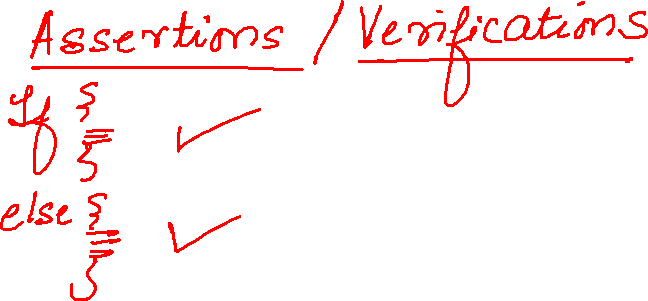 Assertions / Verifications
If {
}
else {
}